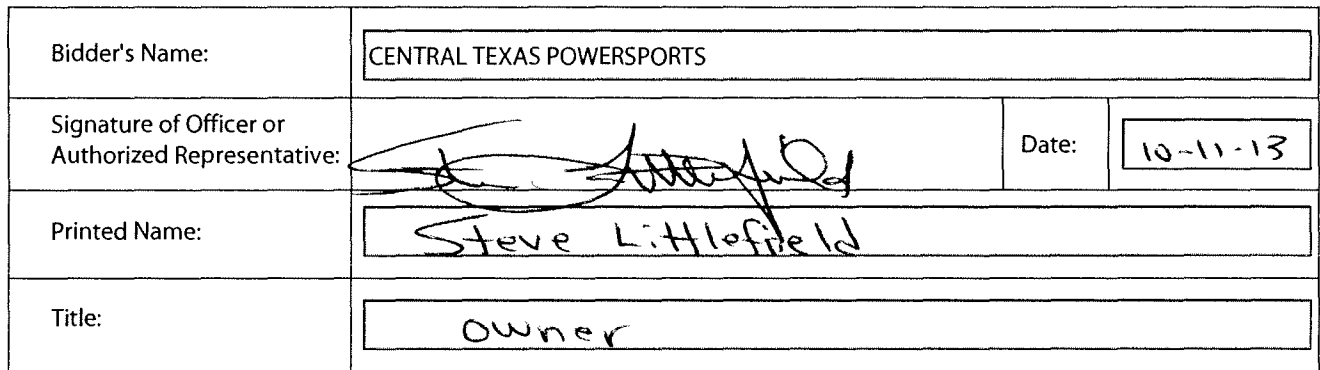 Bidder's Name:
CENTRAL TEXAS POWERSPORTS
Signature of Officer or
Authorized Representative:
Steve Littlefield
Date:
10-11-13
Printed Name:
Steve Littlefield
Title:
owner